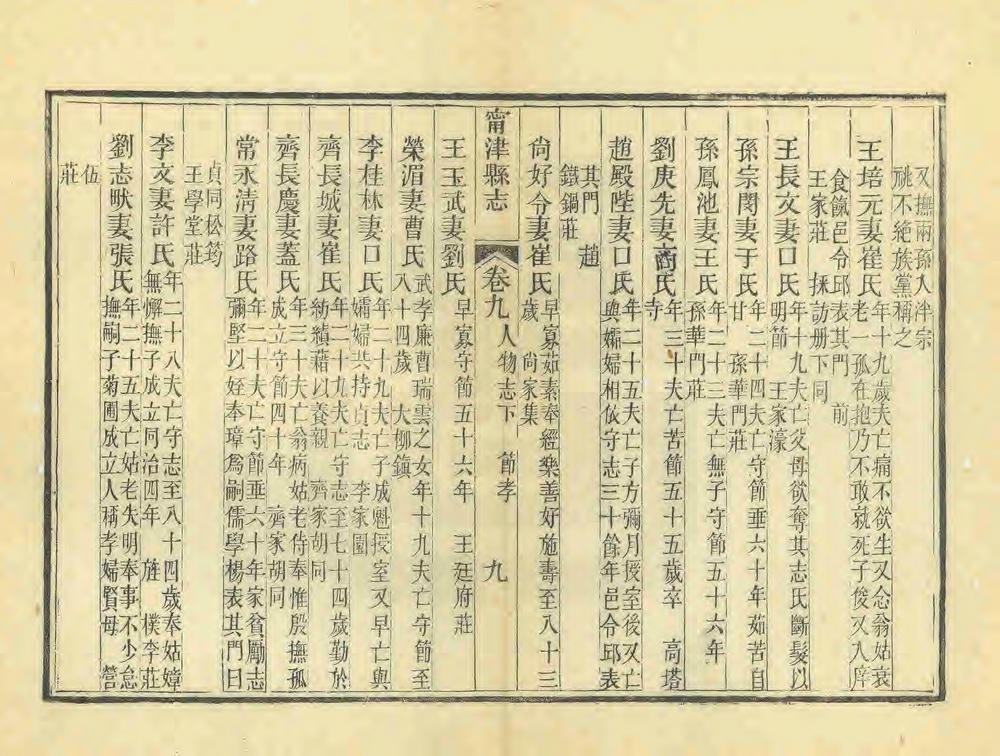 又撫兩孫入泮宗
祧不絕族黨稱之
王培元妻崔氏年十九歲夫亡痛不欲生又念翁姑衰
老一孤在抱乃不敢就死子俊又入庠
食餼邑令邱表其門　前
王家莊　採訪册下同
王長文妻口氏年十九夫亡父母欲奪其志氏斷髮以
明節　王家濠
孫宗閔妻于氏年二十四夫亡守節垂六十年茹苦自
甘　孫華門莊
孫鳳池妻王氏年二十三夫亡無子守節五十六年
孫華門莊
劉庚先妻商氏年三十夫亡苦節五十五歲卒　高塔
寺
趙殿陛妻口氏年二十五夫亡子方彌月授室後又亡
與孀婦相依守志三十餘年邑令邱表
其門　趙
鐵鍋莊
尙好令妻崔氏早寡茹素奉經樂善好施壽至八十三
歲　尙家集
甯津縣志
卷九　人物志下　節孝　九
王玉武妻劉氏早寡守節五十六年　王廷府莊
榮湄妻曹氏武孝廉曹瑞雲之女年十九夫亡守節至
八十四歲　大柳鎭
李桂林妻口氏年二十九夫亡子成魁授室又早亡與
孀婦共持貞志　李家園
齊長城妻崔氏年二十九夫亡守志至七十四歲勤於
紡績藉以養親　齊家胡同
齊長慶妻蓋氏年三十夫亡翁病姑老侍奉惟殷撫孤
成立守節四十年　齊家胡同
常永淸妻路氏年二十夫亡守節垂六十年家貧勵志
彌堅以姪奉璋爲嗣儒學楊表其門曰
貞同松筠
王學堂莊
李文妻許氏年二十八夫亡守志至八十四歲奉姑嫜
無懈撫子成立同治四年　旌　樸李莊
劉志畎妻張氏年二十五夫亡姑老失明奉事不少怠
撫嗣子菊圃成立人稱孝婦賢母　營
伍
莊